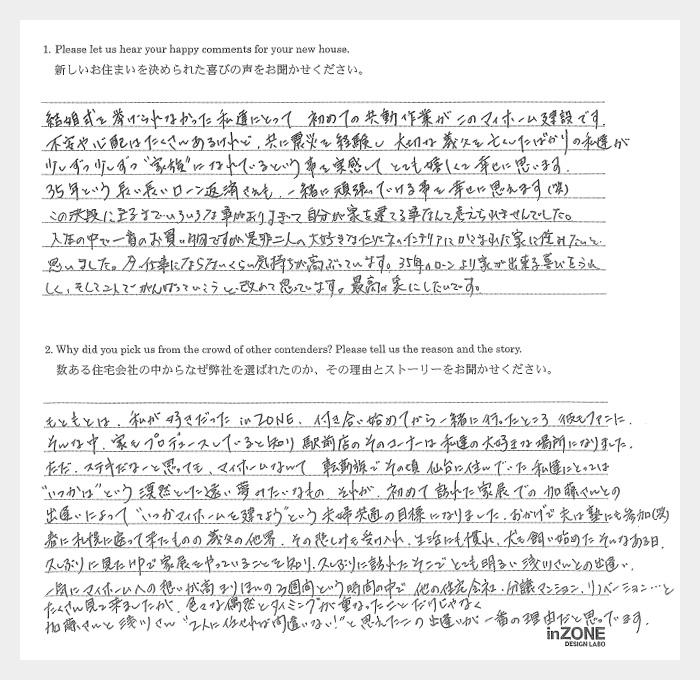 1. Please let us hear your happy comments for your new house.
新しいお住まいを決められた喜びの声をお聞かせください。
結婚式を挙げられなかった私達にとって 初めての共動作業がこのマイホーム建設です。
不安や心配はたくさんあるけれど、共に震災を経験し 大切な義父を亡くしたばかりの私達が
少しずつ少しずつ“家族”になれているという事を実感して とても嬉しくて幸せに思います。
35年という長い長いローン返済さえも、一緒に頑張っていける事を幸せに思えます(笑)
この決段に至るまでいろいろな事がありまして自分が家を建てる事なんて考えられませんでした。
人生の中で一番のお買い物ですが是非二人の大好きなインテリアにかこまれた家に住みたいと
思いました。仕事にならないくらい気持ちが高ぶっています。35年のローンより家が出来る喜びをうれ
しく、そして二人でがんばっていこうと改めて思っています。最高の家にしたいです。
2. Why did you pick us from the crowd of other contenders? Please tell us the reason and the story.
数ある住宅会社の中からなぜ弊社を選ばれたのか、その理由とストーリーをお聞かせください。
もともとは、私が好きだった inZONE、付き合い始めてから一緒に行ったところ 彼もファンに。
そんな中、家もプロデュースしていると知り 駅前店のそのコーナーは私達の大好きな場所になりました。
ただ、ステキだな〜と思っても、マイホームなんて 転勤族でその頃 仙台に住んでいた私達にとっては
“いつかは”という漠然とした遠い夢みたいなもの。それが、初めて訪れた家展での加藤さんとの
出逢いによって“いつかマイホームを建てよう”という夫婦共通の目標になりました。おかげで夫は塾にも参加(笑)
春に札幌に戻って来たものの義父の他界、その悲しみも受け入れ、生活にも慣れ、犬も飼い始めたそんなある日、
久しぶりに見たHPで家展をやっていることを知り、久しぶりに訪れたそこでとても明るい浅川さんとの出逢い、
一気にマイホームへの想いが高まりほんの2週間という時間の中で 他の住宅会社・分譲マンション、リノベーション…と
たくさん見て来ましたが、色々な偶然とタイミングが重なったことだけじゃなく
加藤さんと浅川さん“2人に任せれば間違いない!”と思えたこの出逢いが 一番の理由だと思っています。
inZONE
DESIGN LABO